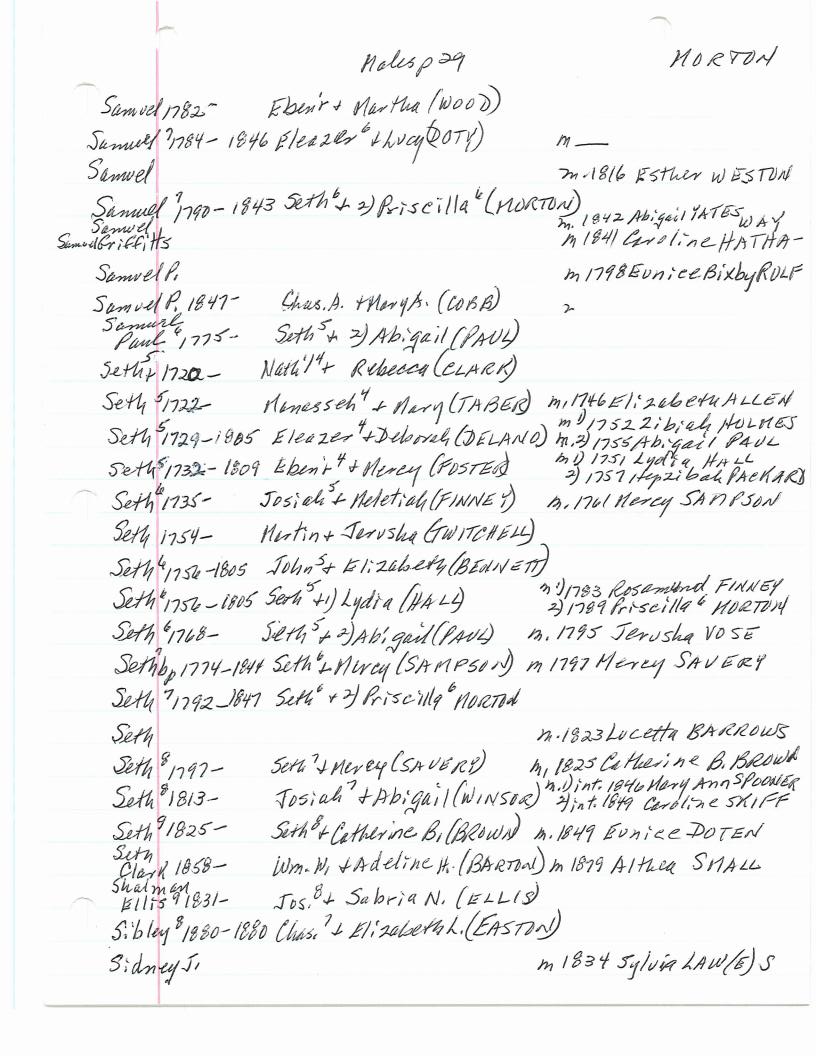 Males p 29 MORTON
Samuel 1782- Eben'r + Martha (WOOD)
Samuel ⁷1784-1846 Eleazer⁶ + Lucy (DOTY) m —
Samuel m. 1816 Esther WESTON
Samuel ⁷1790-1843 Seth⁶ + 2) Priscilla⁶ (MORTON)
Samuel m. 1842 Abigail YATES
Samuel Griffitts m 1841 Caroline HATHA-WAY
Samuel P. m 1798 Eunice Bixby ROLF
Samuel P. 1847- Chas. A. + Mary A. (COBB)
Samuel
Paul ⁶1775- Seth⁵ + 2) Abigail (PAUL)
Seth⁵ 1720- Nath'l⁴ + Rebecca (CLARK)
Seth ⁵1722- Manasseh⁴ + Mary (TABER) m. 1746 Elizabeth ALLEN
Seth ⁵1729-1805 Eleazer⁴ + Deborah (DELANO) m 1) 1752 Zibiah HOLMES
m. 2) 1755 Abigail PAUL
Seth ⁵1732-1809 Eben'r⁴ + Mercy (FOSTER) m 1) 1751 Lydia HALL
2) 1757 Hepzibah PACKARD
Seth ⁶1735- Josiah⁵ + Meletiah (FINNEY) m. 1761 Mercy SAMPSON
Seth 1754- Martin + Jerusha (TWITCHELL)
Seth ⁶1756-1805 John⁵ + Elizabeth (BENNETT)
Seth ⁶1756-1805 Seth⁵ + 1) Lydia (HALL) m 1) 1783 Rosamund FINNEY
2) 1789 Priscilla⁶ MORTON
Seth ⁶1768- Seth⁵ + 2) Abigail (PAUL) m. 1795 Jerusha VOSE
Seth ⁷bp 1774-1844 Seth⁶ + Mercy (SAMPSON) m 1797 Mercy SAVERY
Seth ⁷1792-1847 Seth⁶ + 2) Priscilla⁶ MORTON
Seth m. 1823 Lucetta BARROWS
Seth ⁸1797- Seth⁷ + Mercy (SAVERY) m, 1825 Catherine B. BROWN
Seth ⁸1813- Josiah⁷ + Abigail (WINSOR) m. 1) int. 1846 Mary Ann SPOONER
2) int. 1849 Caroline SKIFF
Seth ⁹1825- Seth⁸ + Catherine B. (BROWN) m. 1849 Eunice DOTEN
Seth
Clark 1858- Wm. W. + Adeline H. (BARTON) m 1879 Althea SMALL
Shalman
Ellis ⁹1831- Jos.⁸ + Sabria N. (ELLIS)
Sibley ⁸1880-1880 Chas.⁷ + Elizabeth L. (EASTON)
Sidney J. m 1834 Sylvia LAW(E)S